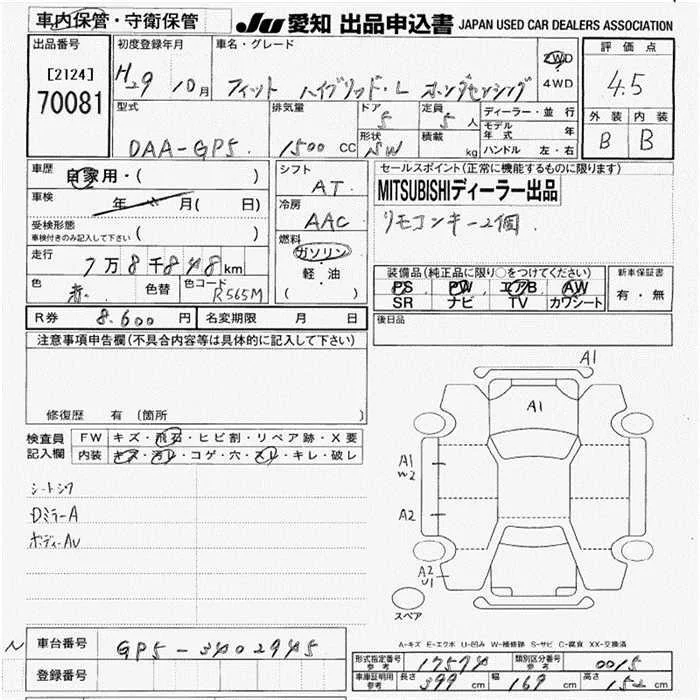 車内保管・守衛保管
JU 愛知 出品申込書 JAPAN USED CAR DEALERS ASSOCIATION
出品番号
[2124]
70081
初度登録年月
H29 10月
車名・グレード
フィット ハイブリッド・L ホンダセンシング
2WD
4WD
評価点
4.5
外装 内装
B B
型式
DAA-GP5.
排気量
1500 CC
ドア
5
形状
SW
定員
5人
積載
kg
ディーラー・並行
モデル年式 年
ハンドル 左・右
車歴
自家用・( )
車検
年 月( 日)
受検形態
車検付きのみ記入して下さい ( )
走行
7万8千848km
色
赤.
色替
色コード
R565M
シフト
AT.
冷房
AAC
燃料
ガソリン
軽・油
( )
セールスポイント(正常に機能するものに限ります)
MITSUBISHIディーラー出品
リモコンキー2個.
装備品(純正品に限り○をつけてください)
PS PW エアB AW
SR ナビ TV カワシート
新車保証書
有・無
R券 8.600 円
名変期限 月 日
後日品
注意事項申告欄(不具合内容等は具体的に記入して下さい)
修復歴 有 (箇所 )
検査員記入欄
FW キズ・飛石・ヒビ割・リペア跡・X要
内装 キズ・汚レ・コゲ・穴・スレ・キレ・破レ
シートシワ
Dミラー A
ボディー AU
A1
A1
A1
W2
A2
A2
U1
スペア
A-キズ E-エクボ U-凹み W-補修跡 S-サビ C-腐食 XX-交換済
N
車台番号 GP5-3402945
登録番号
形式指定番号 参考 17574
類別区分番号 参考 0015
車庫証明用 参考 長さ 399 cm 幅 169 cm 高さ 152 cm